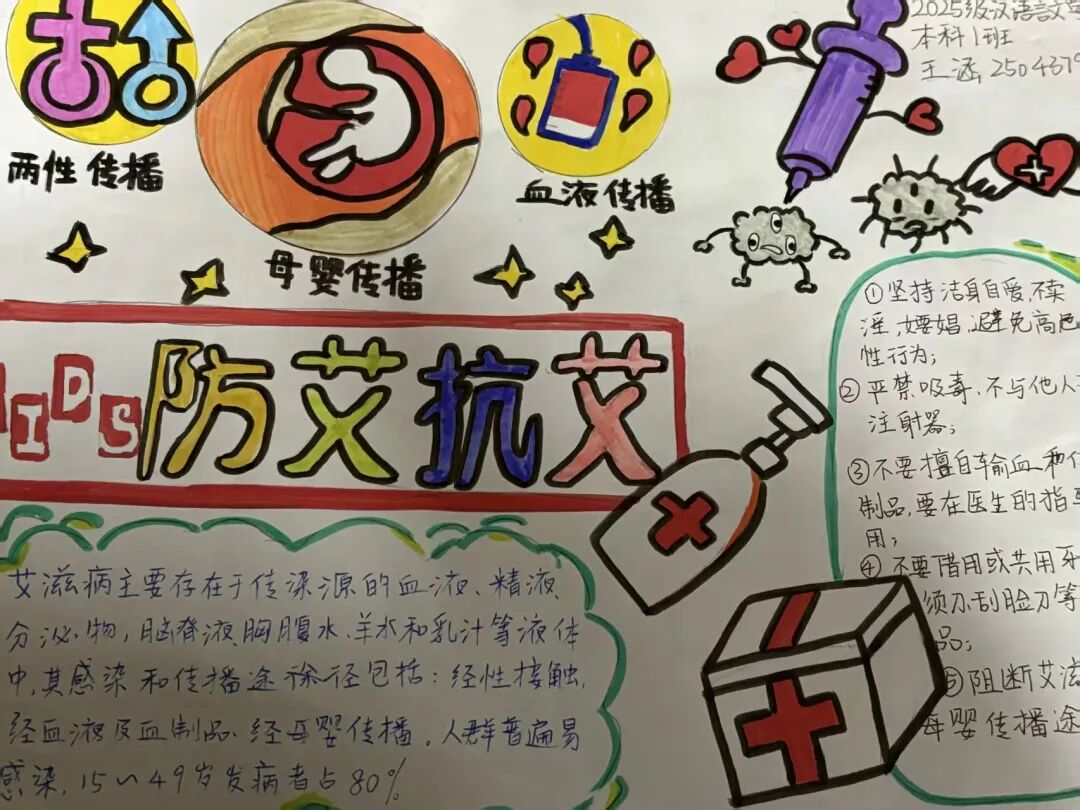 2025级汉语言文
本科1班
王涵, 2504379
两性传播
母婴传播
血液传播
IDS
防艾抗艾
①坚持洁身自爱,不卖
淫,嫖娼,避免高危
性行为;
②严禁吸毒、不与他人
注射器;
③不要擅自输血和
制品,要在医生的指
用;
④不要借用或共用牙
须刀刮脸刀等
品;
⑤阻断艾滋
母婴传播途
艾滋病主要存在于传染源的血液、精液
分泌物,脑脊液,胸腹水、羊水和乳汁等液体
中,其感染和传播途径包括:经性接触,
经血液及血制品、经母婴传播。人群普遍易
感染,15~49岁发病者占80%